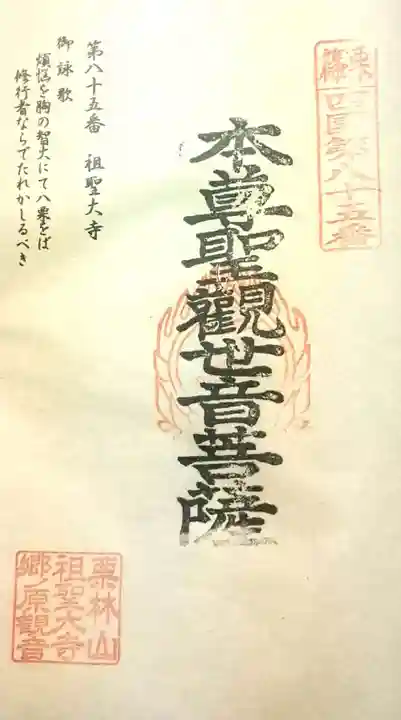 篠栗
四国第八十五番
本尊聖觀世音菩薩
第八十五番 祖聖大寺
御詠歌
煩悩を胸の智火にて八栗をば
修行者ならでたれかしるべき
栗林山
祖聖大寺
郷ノ原観音